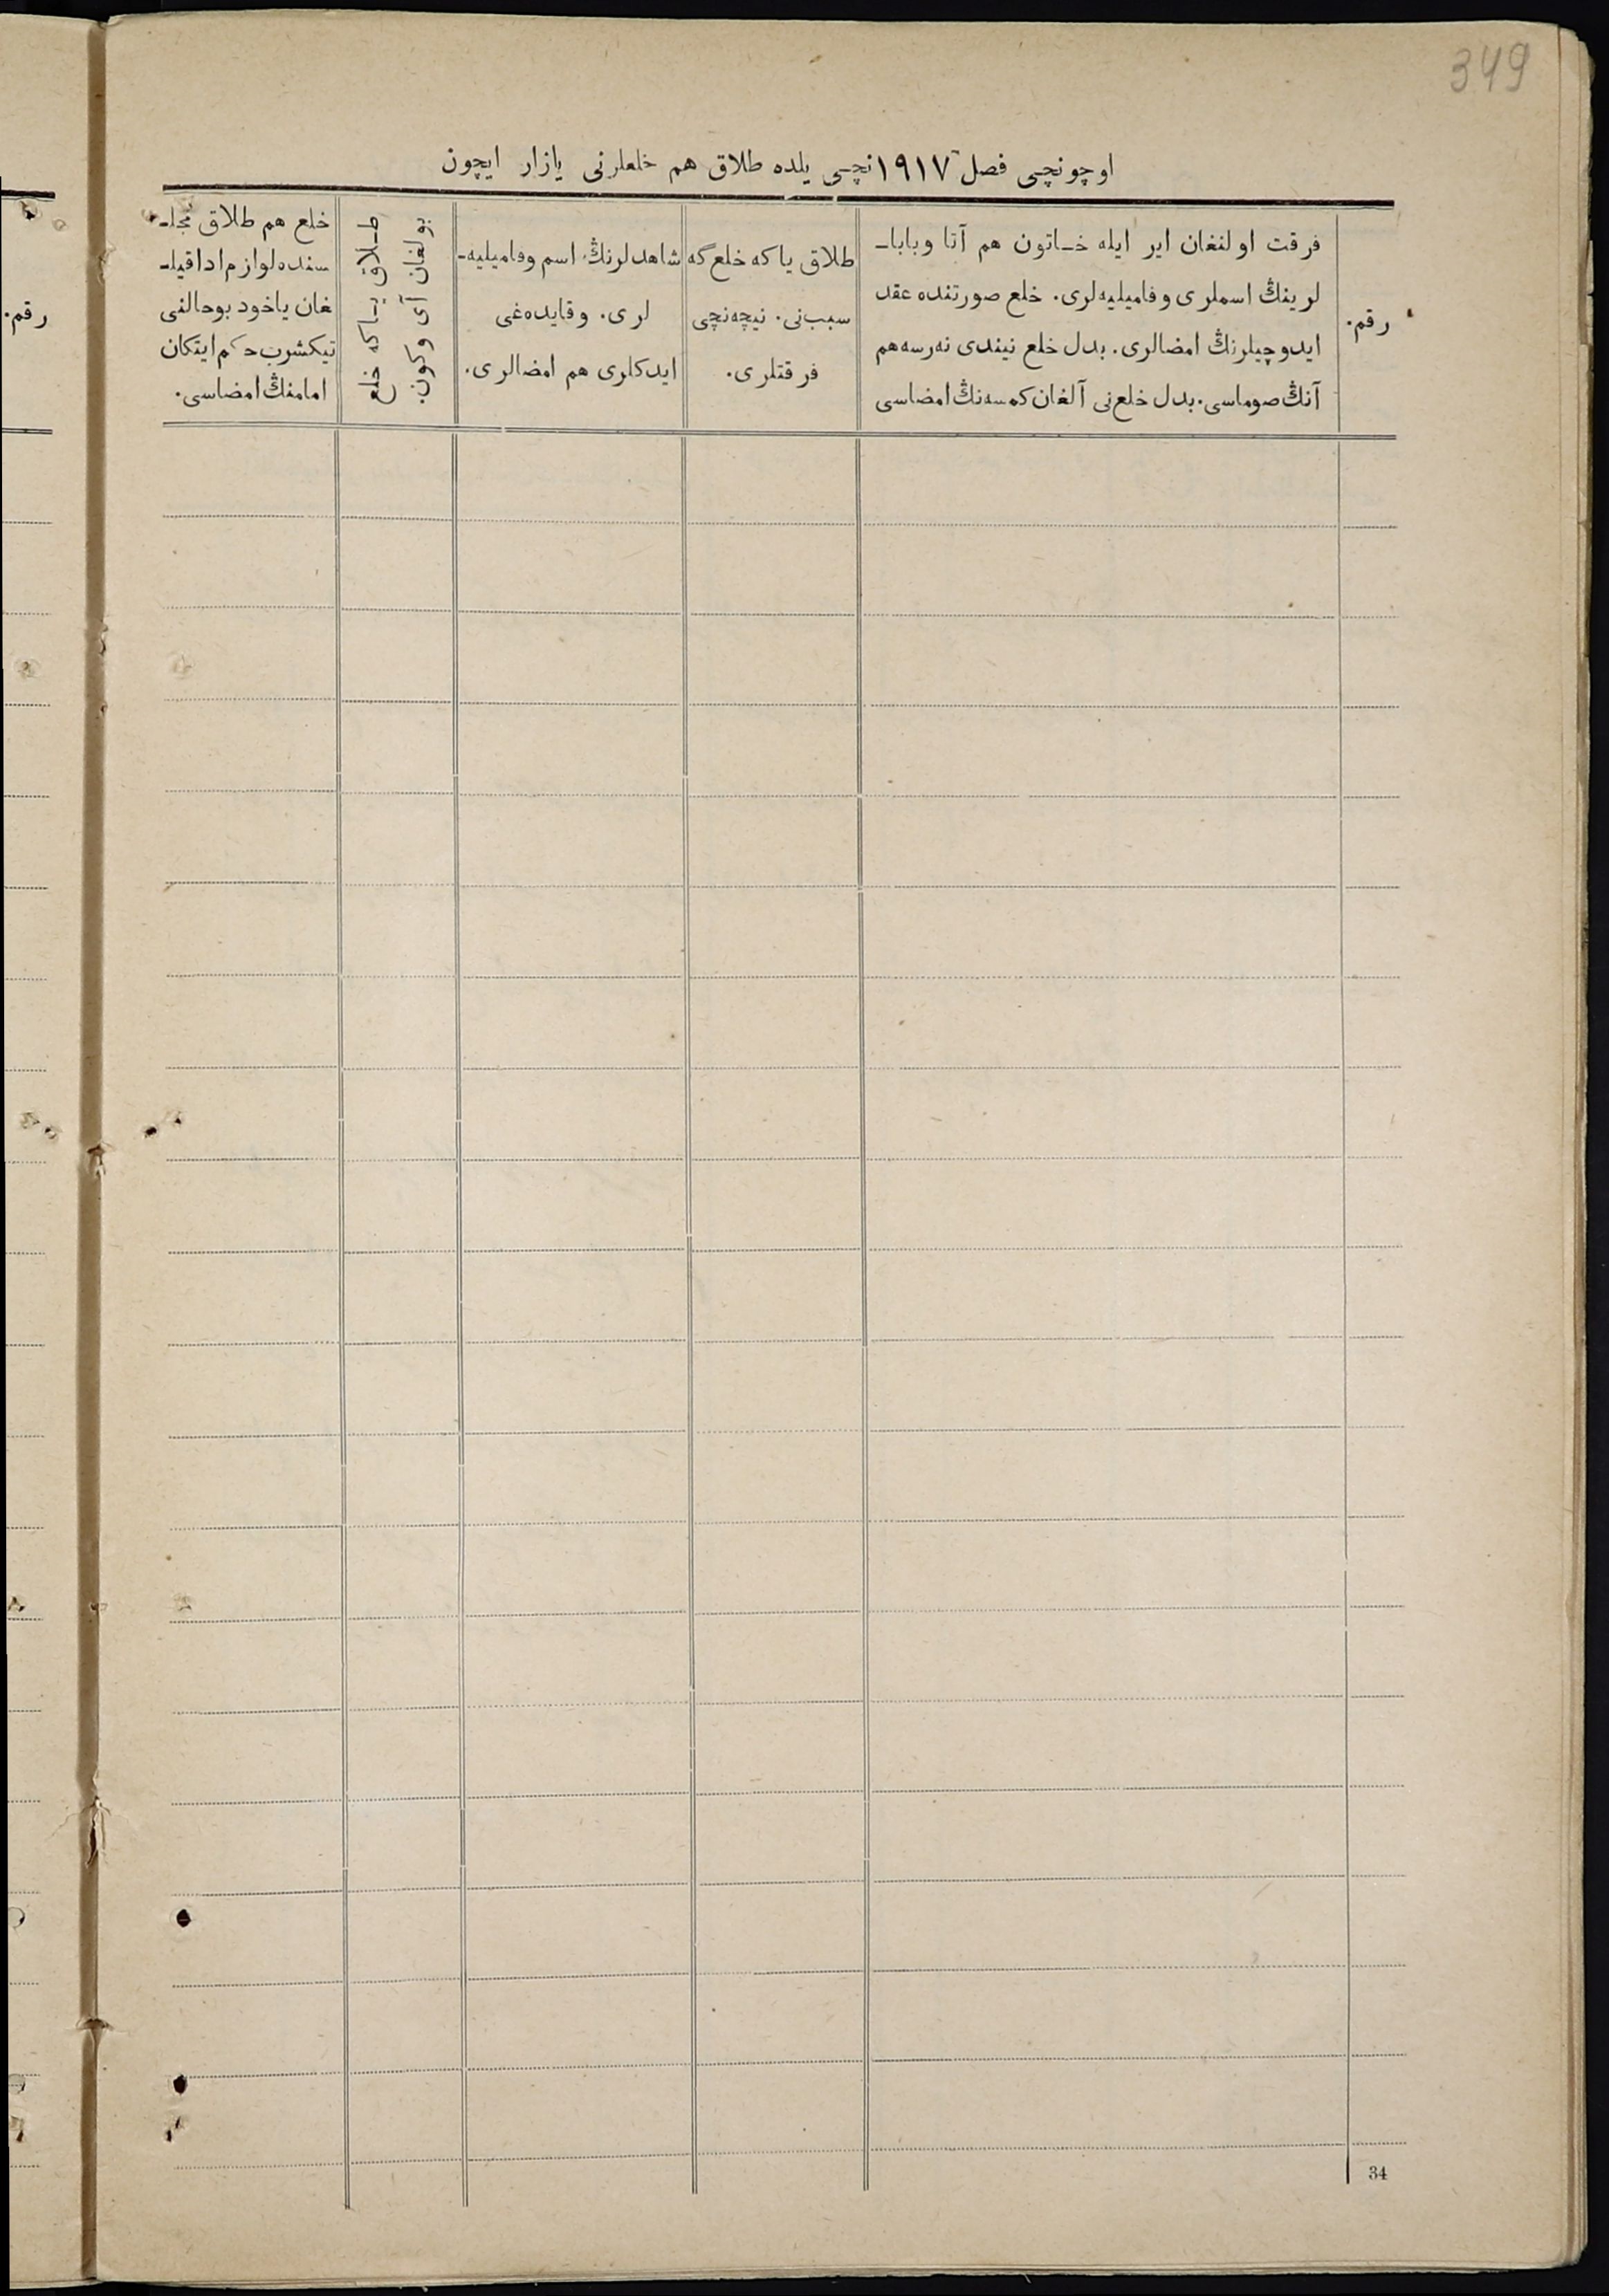 349
اوچونچی فصل ۱۹۱۷نچی یلده طلاق هم خلعلرنی یازار ایچون
رقم.
فرقت اولنغان ایر ایله خـاتون هم آتا وباباـ
لرینڭ اسملری وفامیلیه‌لری. خلع صورتنده عقد
ایدوچیلرنڭ امضالری. بدل خلع نیندی نه‌رسه هم
آنڭ صوماسی. بدل خلع‌نی آلغان کمسه‌نڭ امضاسی
طلاق یاکه خلع گه
سبب‌نی. نیچه‌نچی
فرقتلری.
شاهدلرنڭ اسم وفامیلیه‌ـ
لری. وقایده‌غی
ایدکلری هم امضالری.
طـلاق یـاکه خلع
بولغان آی وکون.
خلع هم طلاق مجلـ
سنده لوازم ادا قیلـ
غان یاخود بوحالنی
تیکشرب حکم ایتکان
امامنڭ امضاسی.
رقم.
34